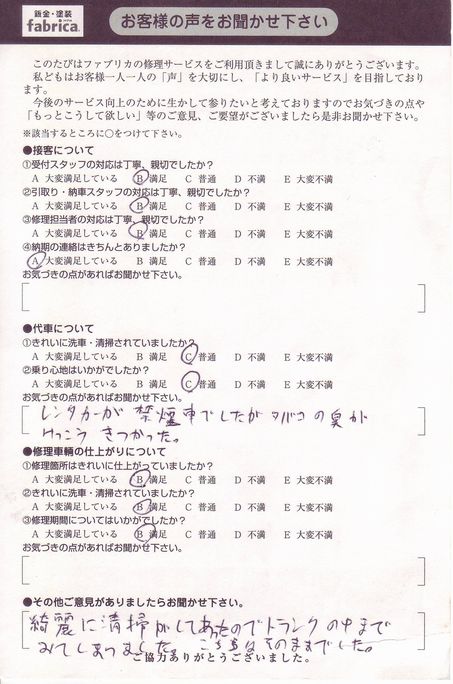 鈑金・塗装
fabrica.
お客様の声をお聞かせ下さい
このたびはファブリカの修理サービスをご利用頂きまして誠にありがとうございます。
私どもはお客様一人一人の「声」を大切にし、「より良いサービス」を目指しており
ます。
今後のサービス向上のために生かして参りたいと考えておりますのでお気づきの点や
「もっとこうして欲しい」等のご意見、ご要望がございましたら是非お聞かせ下さい。
※該当するところに○をつけて下さい。
●接客について
①受付スタッフの対応は丁寧、親切でしたか?
A 大変満足している B 満足 C 普通 D 不満 E 大変不満
②引取り・納車スタッフの対応は丁寧、親切でしたか?
A 大変満足している B 満足 C 普通 D 不満 E 大変不満
③修理担当者の対応は丁寧、親切でしたか?
A 大変満足している B 満足 C 普通 D 不満 E 大変不満
④納期の連絡はきちんとありましたか?
A 大変満足している B 満足 C 普通 D 不満 E 大変不満
お気づきの点があればお聞かせ下さい。
●代車について
①きれいに洗車・清掃されていましたか?
A 大変満足している B 満足 C 普通 D 不満 E 大変不満
②乗り心地はいかがでしたか?
A 大変満足している B 満足 C 普通 D 不満 E 大変不満
お気づきの点があればお聞かせ下さい。
レンタカーが禁煙車でしたがタバコの臭が
けっこうきつかった。
●修理車輌の仕上がりについて
①修理箇所はきれいに仕上がっていましたか?
A 大変満足している B 満足 C 普通 D 不満 E 大変不満
②きれいに洗車・清掃されていましたか?
A 大変満足している B 満足 C 普通 D 不満 E 大変不満
③修理期間についてはいかがでしたか?
A 大変満足している B 満足 C 普通 D 不満 E 大変不満
お気づきの点があればお聞かせ下さい。
●その他ご意見がありましたらお聞かせ下さい。
綺麗に清掃がしてあったのでトランクの中まで
みてしまいました。こちらはそのままでした。
ご協力ありがとうございました。